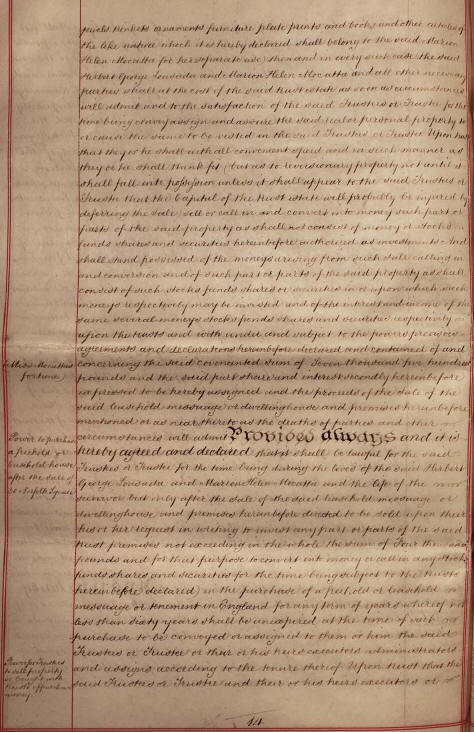 jewels trinkets ornaments furniture plate prints and books and other articles of
the like nature which it is hereby declared shall belong to the said Marion
Helen Mocatta for her separate use) then and in every such case the said
Herbert George Lousada and Marion Helen Mocatta and all other necessary
parties shall at the cost of the said trust estate as soon as circumstances
will admit and to the satisfaction of the said Trustees or Trustee for the
time being convey assign and assure the said real or personal property to
or cause the same to be vested in the said Trustees or Trustee Upon trust
that they or he shall with all convenient speed and in such manner as
they or he shall think fit (but as to reversionary property not until it
shall fall into possession unless it shall appear to the said Trustees or
Trustee that the Capital of the trust estate will probably be injured by
deferring the sale) sell or call in and convert into money such part or
parts of the said property as shall not consist of money or stocks
funds shares and securities hereinbefore authorized as investments And
shall stand possessed of the moneys arising from such sale calling in
and conversion and of such part or parts of the said property as shall
consist of such stocks funds shares or securities in or upon which such
moneys respectively may be invested and of the interest and income of the
same several moneys stocks funds shares and securities respectively
upon the trusts and with under and subject to the powers provisoes
agreements and declarations hereinbefore declared and contained of and
concerning the said covenanted sum of Seven thousand five hundred
pounds and the said part share and interest secondly hereinbefore
expressed to be hereby assigned and the proceeds of the sale of the
said leasehold messuage or dwellinghouse and premises hereinbefore
mentioned or as near thereto as the deaths of parties and other
circumstances will admit Provided always and it is
hereby agreed and declared that it shall be lawful for the said
Trustees or Trustee for the time being during the lives of the said Herbert
George Lousada and Marion Helen Mocatta and the life of the
survivor but only after the sale of the said leasehold messuage or
dwellinghouse and premises hereinbefore directed to be sold upon their
his or her request in writing to invest any part or parts of the said
trust premises not exceeding in the whole the sum of Four thousand
pounds and for that purpose to convert into money or call in any stocks
funds shares and securities for the time being subject to the trusts
hereinbefore declared) in the purchase of a freehold or leasehold
messuage or tenement in England for any term of years whereof not
less than sixty years shall be unexpired at the time of such
purchase to be conveyed or assigned to them or him the said
Trustees or Trustee or their or his heirs executors administrators
and assigns according to the tenure thereof Upon trust that the
said Trustees or Trustee and their or his heirs executors or
(Miss Mocatta's
fortune)
Power to purchase
a freehold or
leasehold house
after the sale of
30 Norfolk Square
Power for Trustees
to sell property
so bought with
money
14